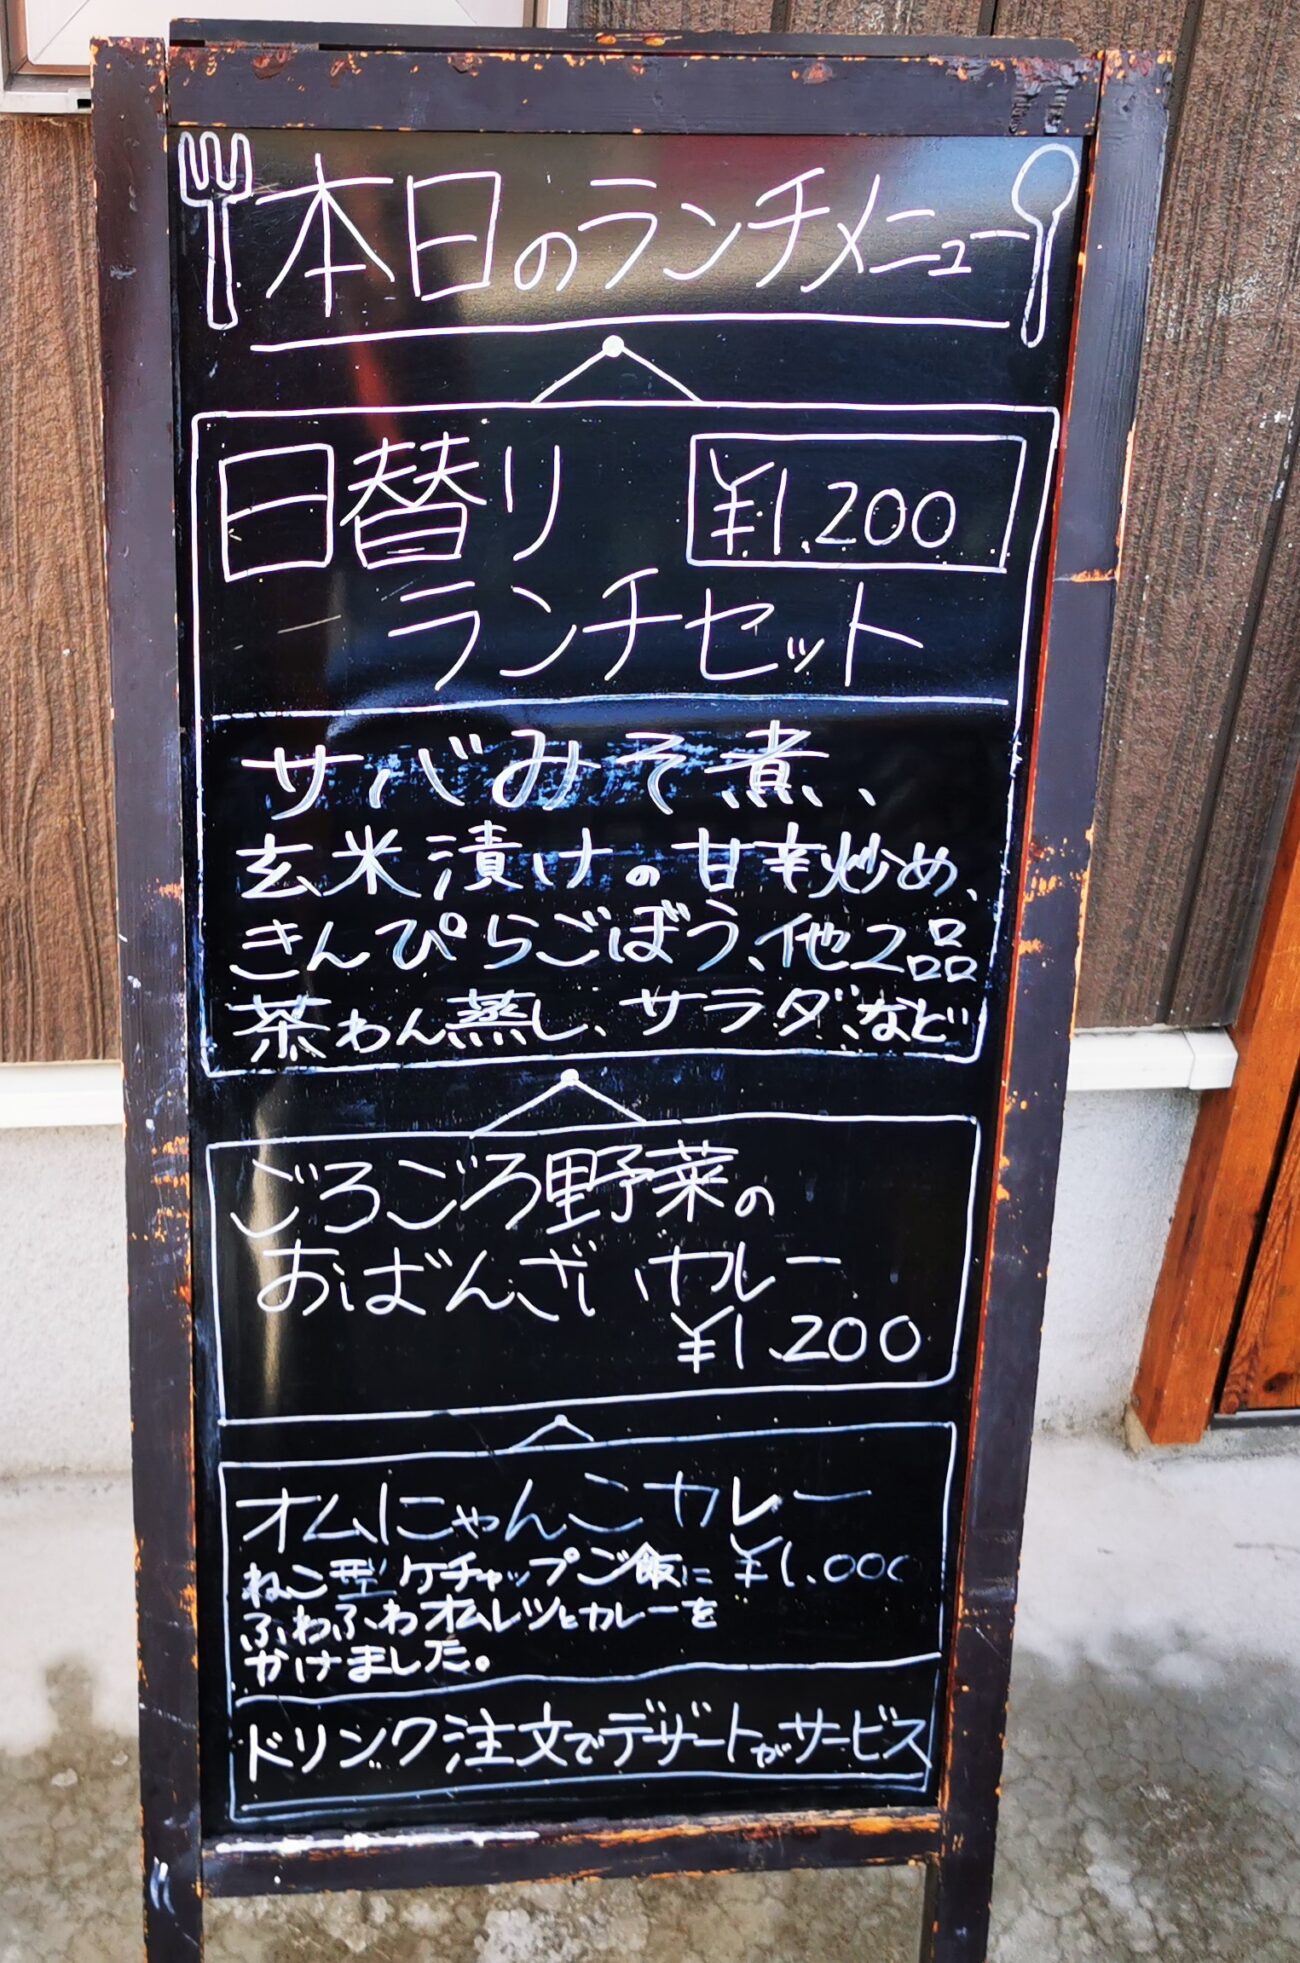 本日のランチメニュー
日替り ¥1.200
ランチセット
サバみそ煮、
玄米漬けの甘辛炒め、
きんぴらごぼう、他2品
茶わん蒸し、サラダ、など
ごろごろ野菜の
おばんざいカレー
¥1.200
オムにゃんこカレー
ねこ型ケチャップご飯に ¥1.000
ふわふわオムレツとカレーを
かけました。
ドリンク注文でデザートがサービス